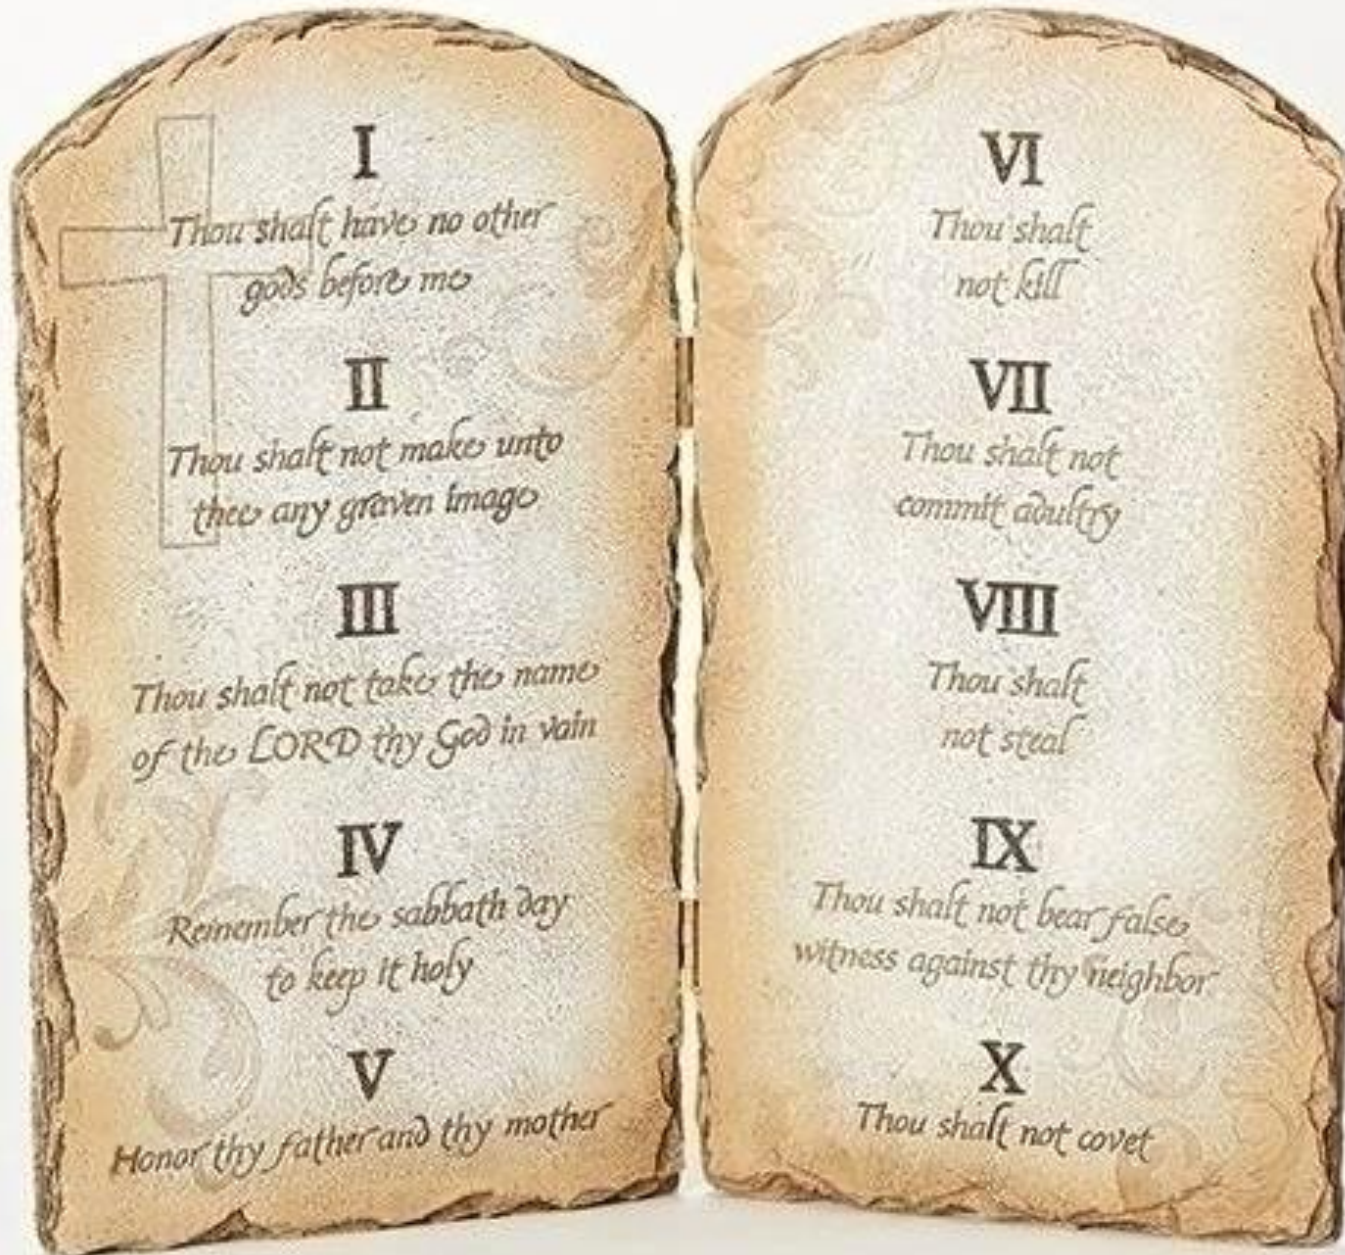 I
Thou shalt have no other
gods before me
II
Thou shalt not make unto
thee any graven image
III
Thou shalt not take the name
of the LORD thy God in vain
IV
Remember the sabbath day
to keep it holy
V
Honor thy father and thy mother
VI
Thou shalt
not kill
VII
Thou shalt not
commit adultry
VIII
Thou shalt
not steal
IX
Thou shalt not bear false
witness against thy neighbor
X
Thou shalt not covet